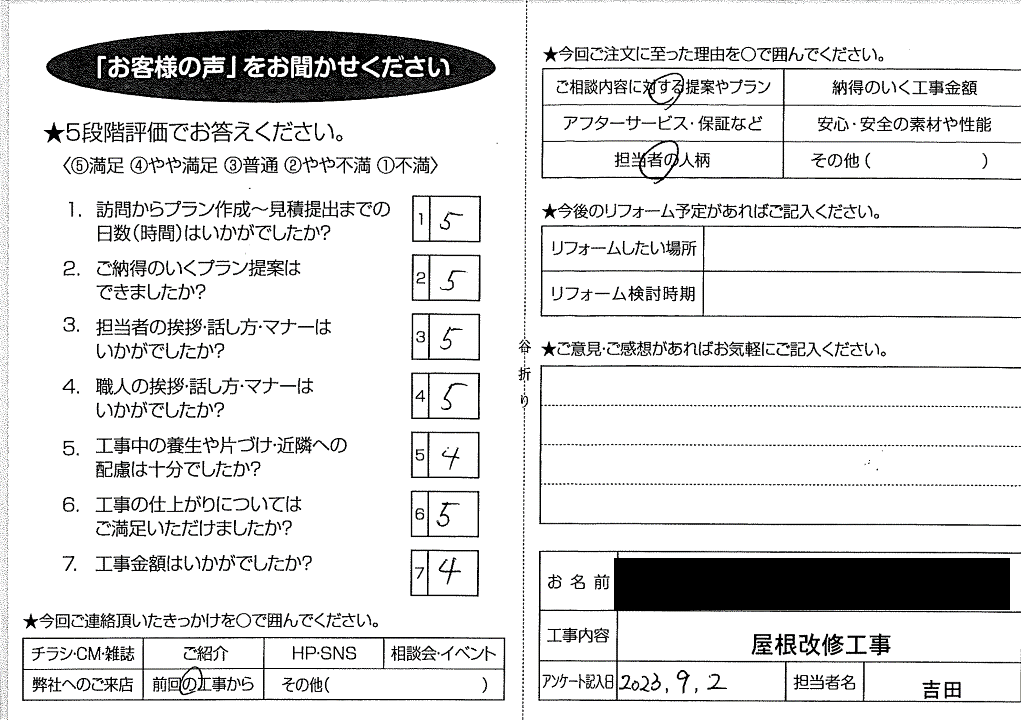 「お客様の声」をお聞かせください
★5段階評価でお答えください。
〈⑤満足 ④やや満足 ③普通 ②やや不満 ①不満〉
1. 訪問からプラン作成～見積提出までの
日数(時間)はいかがでしたか?
1 5
2. ご納得のいくプラン提案は
できましたか?
2 5
3. 担当者の挨拶・話し方・マナーは
いかがでしたか?
3 5
4. 職人の挨拶・話し方・マナーは
いかがでしたか?
4 5
5. 工事中の養生や片づけ・近隣への
配慮は十分でしたか?
5 4
6. 工事の仕上がりについては
ご満足いただけましたか?
6 5
7. 工事金額はいかがでしたか?
7 4
★今回ご連絡頂いたきっかけを〇で囲んでください。
チラシ・CM・雑誌 ご紹介 HP・SNS 相談会・イベント
弊社へのご来店 前回の工事から その他( )
谷折り
★今回ご注文に至った理由を〇で囲んでください。
ご相談内容に対する提案やプラン 納得のいく工事金額
アフターサービス・保証など 安心・安全の素材や性能
担当者の人柄 その他( )
★今後のリフォーム予定があればご記入ください。
リフォームしたい場所
リフォーム検討時期
★ご意見・ご感想があればお気軽にご記入ください。
お名前
工事内容 屋根改修工事
アンケート記入日 2023,9,2 担当者名 吉田